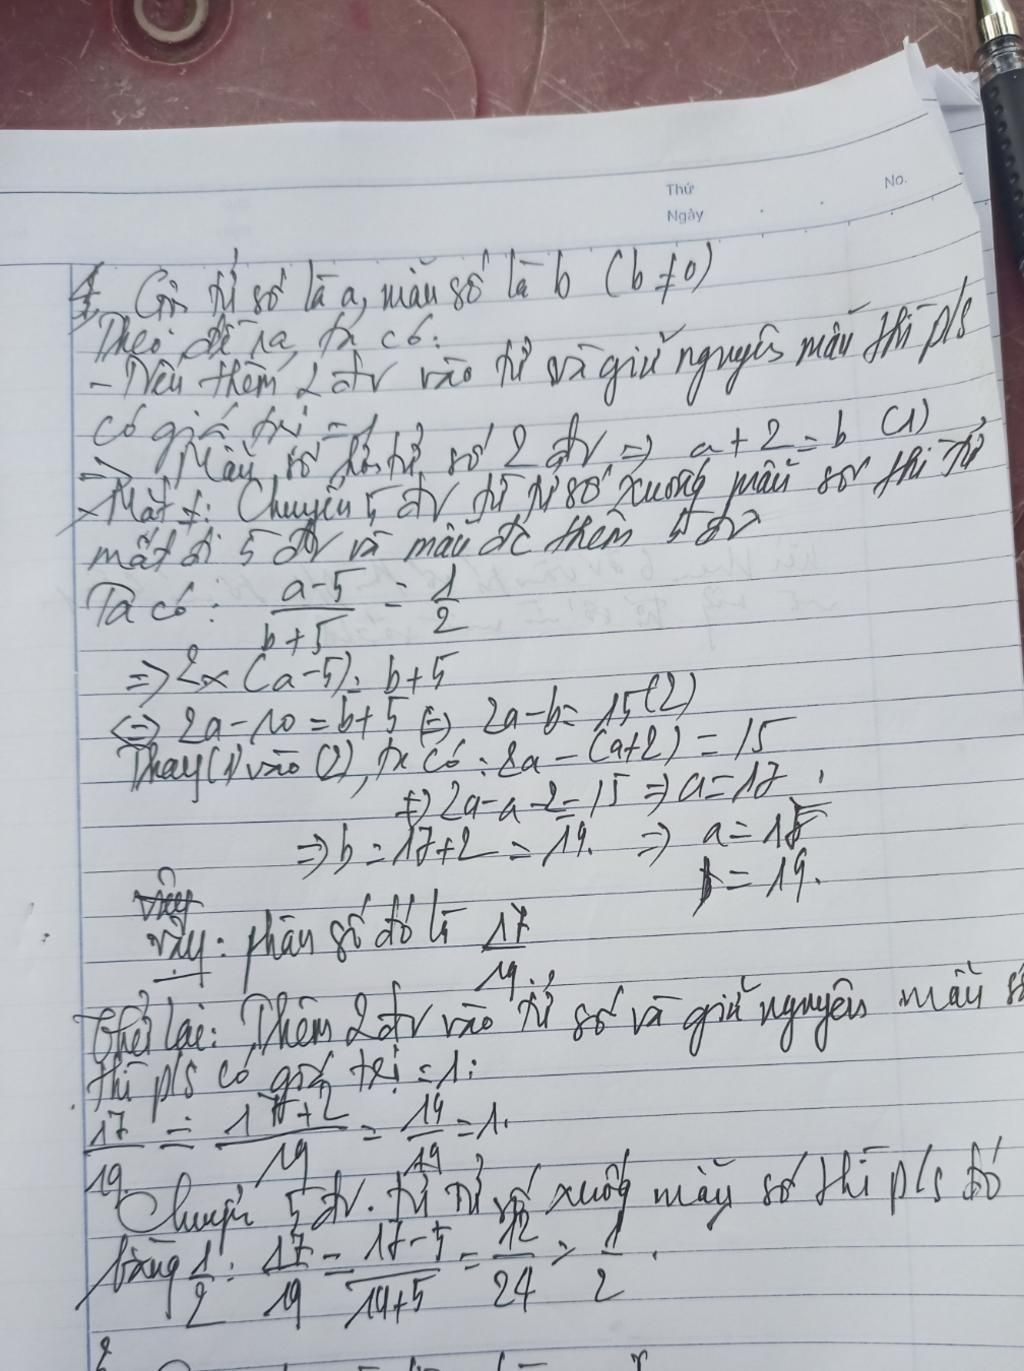 Thứ
No.
Ngày
1, Gọi tử số là a, mẫu số là b (b ≠ 0)
Theo đề ra, ta có:
- Nếu thêm 2 đv vào tử và giữ nguyên mẫu thì p/s
có giá trị = 1
=> Mẫu số hơn tử số 2 đv => a + 2 = b (1)
- Mặt ≠: Chuyển 5 đv từ tử số xuống mẫu số thì tử
mất đi 5 đv và mẫu đc thêm 5 đv
Ta có: (a-5)/(b+5) = 1/2
=> 2 x (a-5) = b+5
<=> 2a - 10 = b+5 <=> 2a - b = 15 (2)
Thay (1) vào (2), ta có: 2a - (a+2) = 15
<=> 2a - a - 2 = 15 => a = 17
=> b = 17+2 = 19. => a = 17
b = 19.
Vậy: phân số đó là 17/19.
Thử lại: Thêm 2 đv vào tử số và giữ nguyên mẫu số
thì p/s có giá trị = 1:
17/19 = (17+2)/19 = 19/19 = 1.
Chuyển 5 đv từ tử số xuống mẫu số thì p/s đó
bằng 1/2: 17/19 = (17-5)/(19+5) = 12/24 = 1/2.